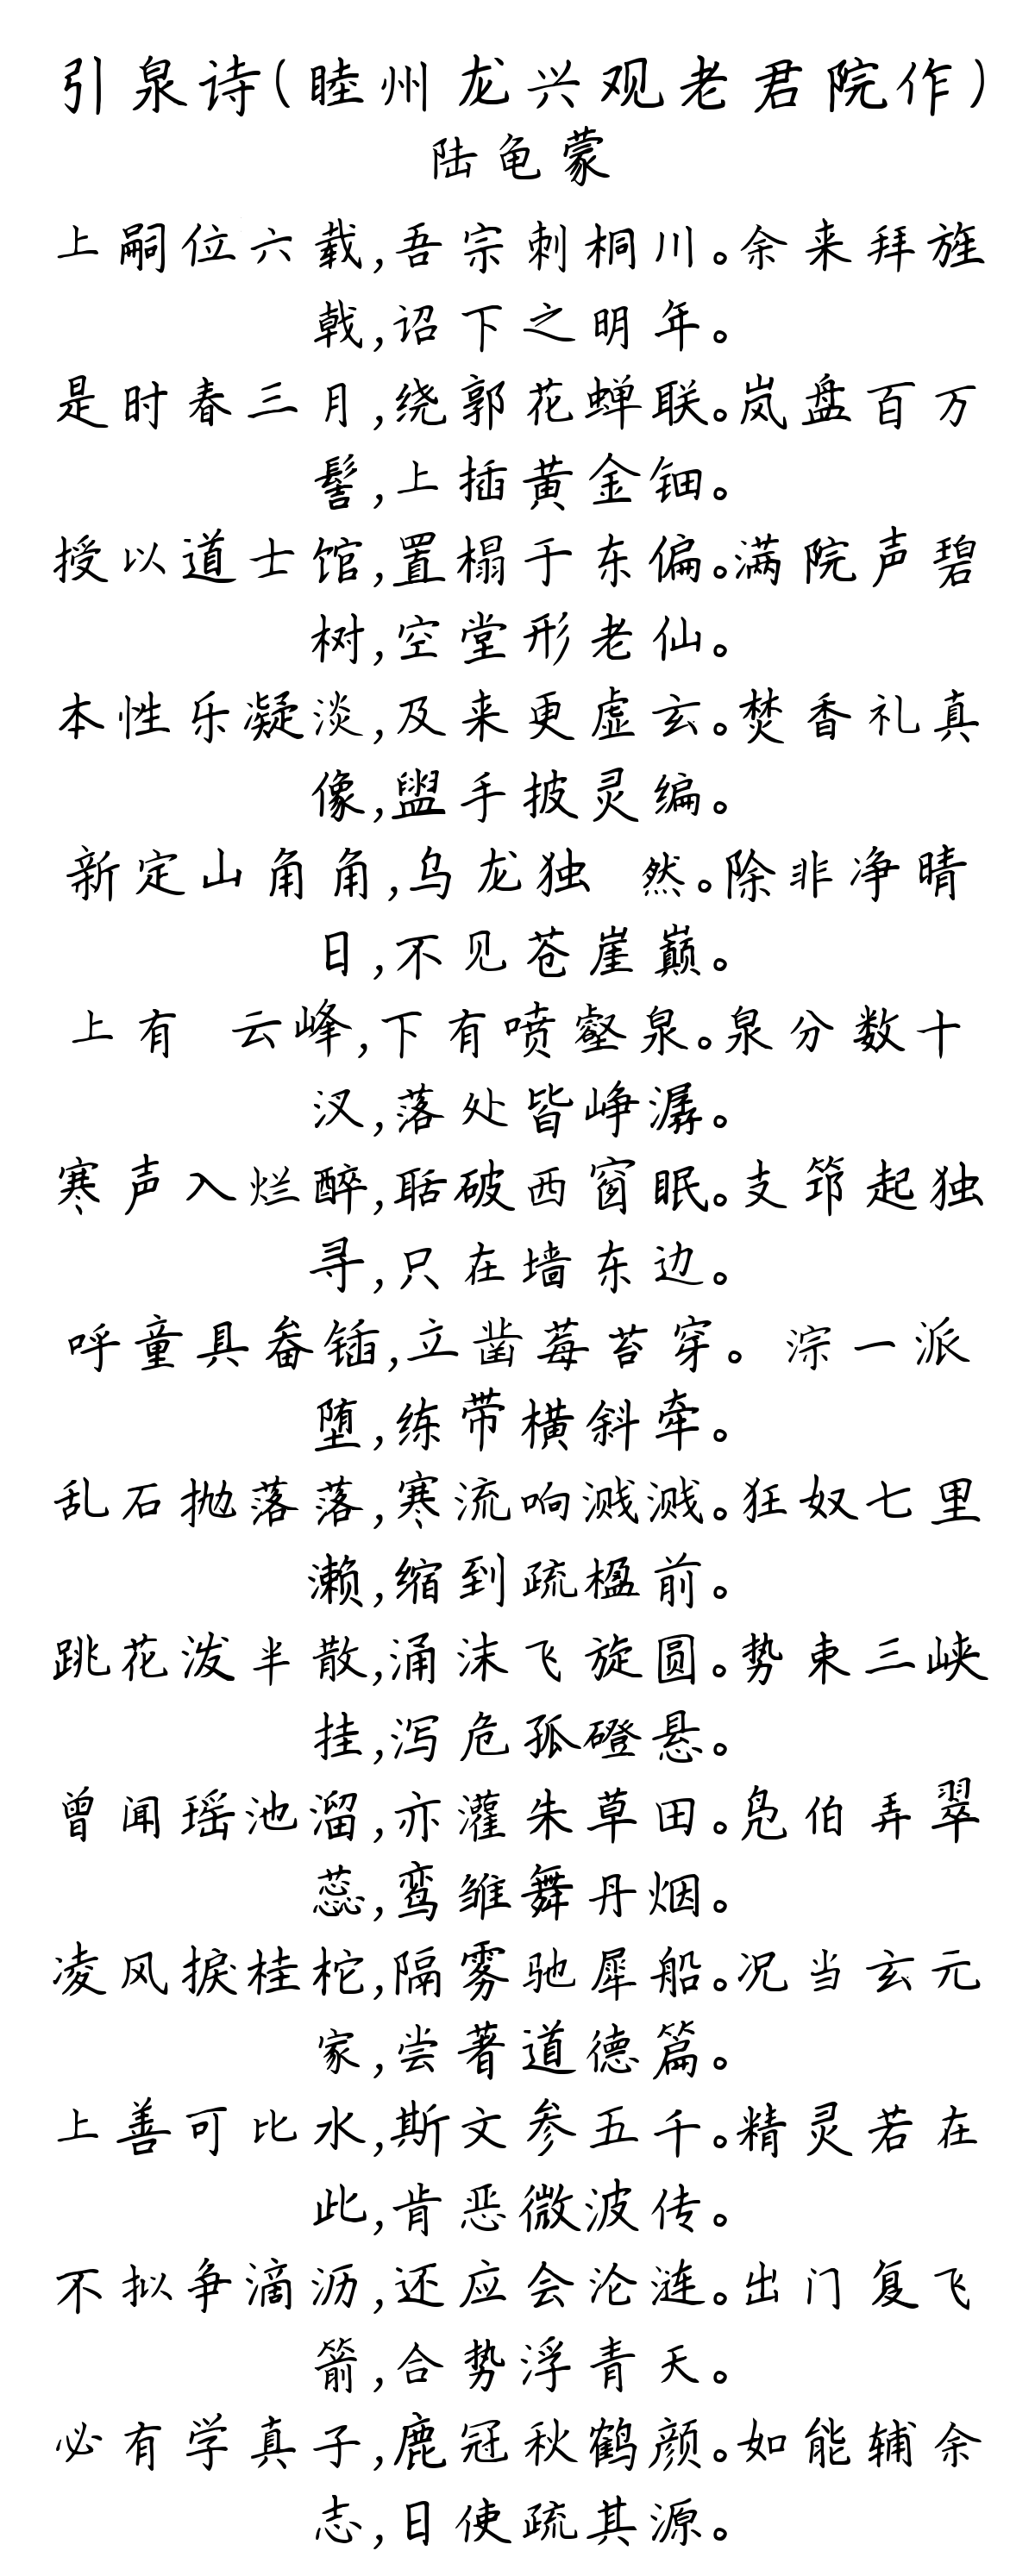 引泉诗(睦州龙兴观老君院作)
陆龟蒙
上嗣位六载,吾宗刺桐川。余来拜旌
戟,诏下之明年。
是时春三月,绕郭花蝉联。岚盘百万
髻,上插黄金钿。
授以道士馆,置榻于东偏。满院声碧
树,空堂形老仙。
本性乐凝淡,及来更虚玄。焚香礼真
像,盥手披灵编。
新定山角角,乌龙独 然。除非净晴
日,不见苍崖巅。
上有 云峰,下有喷壑泉。泉分数十
汊,落处皆峥潺。
寒声入烂醉,聒破西窗眠。支筇起独
寻,只在墙东边。
呼童具畚锸,立凿莓苔穿。 淙一派
堕,练带横斜牵。
乱石抛落落,寒流响溅溅。狂奴七里
濑,缩到疏楹前。
跳花泼半散,涌沫飞旋圆。势束三峡
挂,泻危孤磴悬。
曾闻瑶池溜,亦灌朱草田。凫伯弄翠
蕊,鸾雏舞丹烟。
凌风捩桂柁,隔雾驰犀船。况当玄元
家,尝著道德篇。
上善可比水,斯文参五千。精灵若在
此,肯恶微波传。
不拟争滴沥,还应会沦涟。出门复飞
箭,合势浮青天。
必有学真子,鹿冠秋鹤颜。如能辅余
志,日使疏其源。